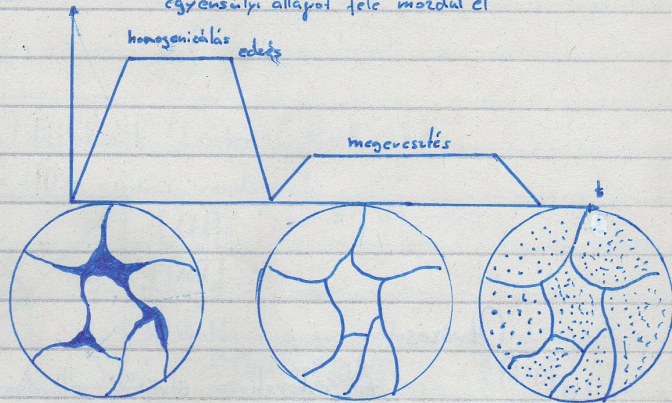 egyensúlyi állapot felé mozdul el
homogenizálás
edzés
megeresztés
t